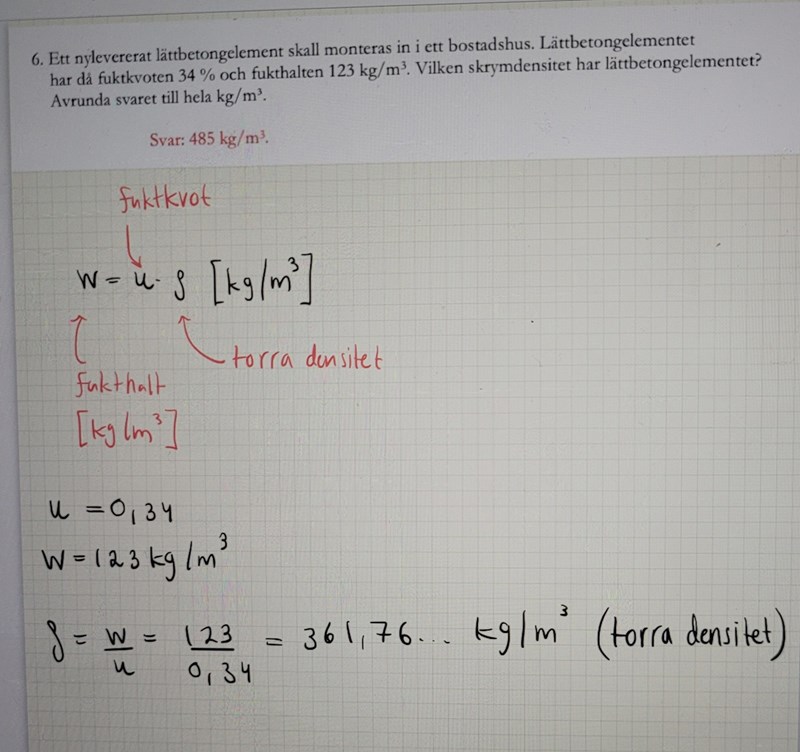 6. Ett nylevererat lättbetongelement skall monteras in i ett bostadshus. Lättbetongelementet
har då fuktkvoten 34 % och fukthalten 123 kg/m³. Vilken skrymdensitet har lättbetongelementet?
Avrunda svaret till hela kg/m³.
Svar: 485 kg/m³.
fuktkvot
W = u · ρ [kg/m³]
torra densitet
fukthalt
[kg/m³]
u = 0,34
W = 123 kg/m³
ρ = W/u = 123/0,34 = 361,76... kg/m³ (torra densitet)